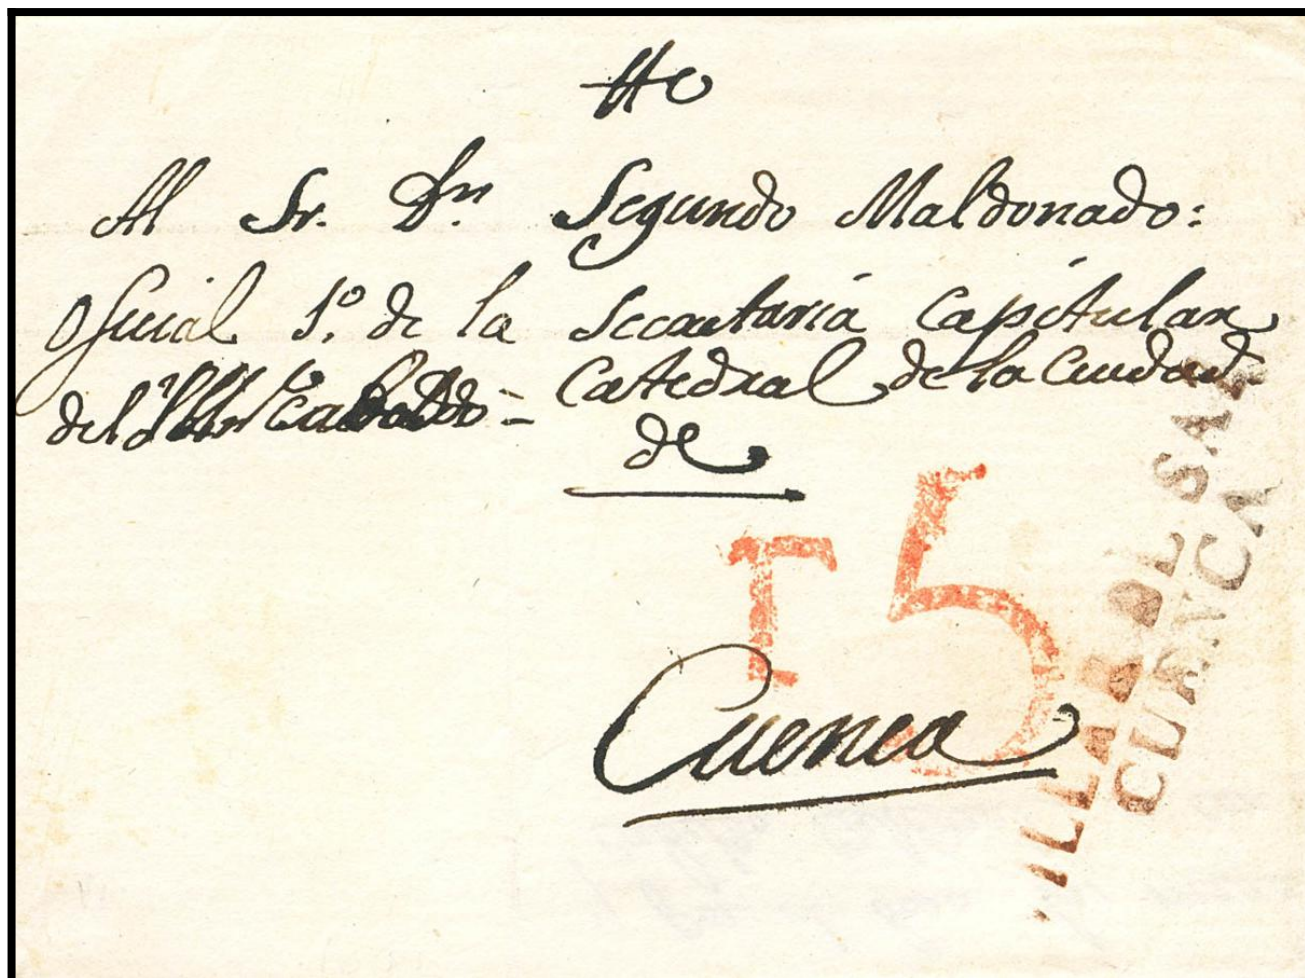 Al Sr. Dn Segundo Maldonado:
Oficial 1º. de la Secretaria Capitular
del Cabildo = Catedral de la Ciudad
de
15
Cuenca
CUENCA